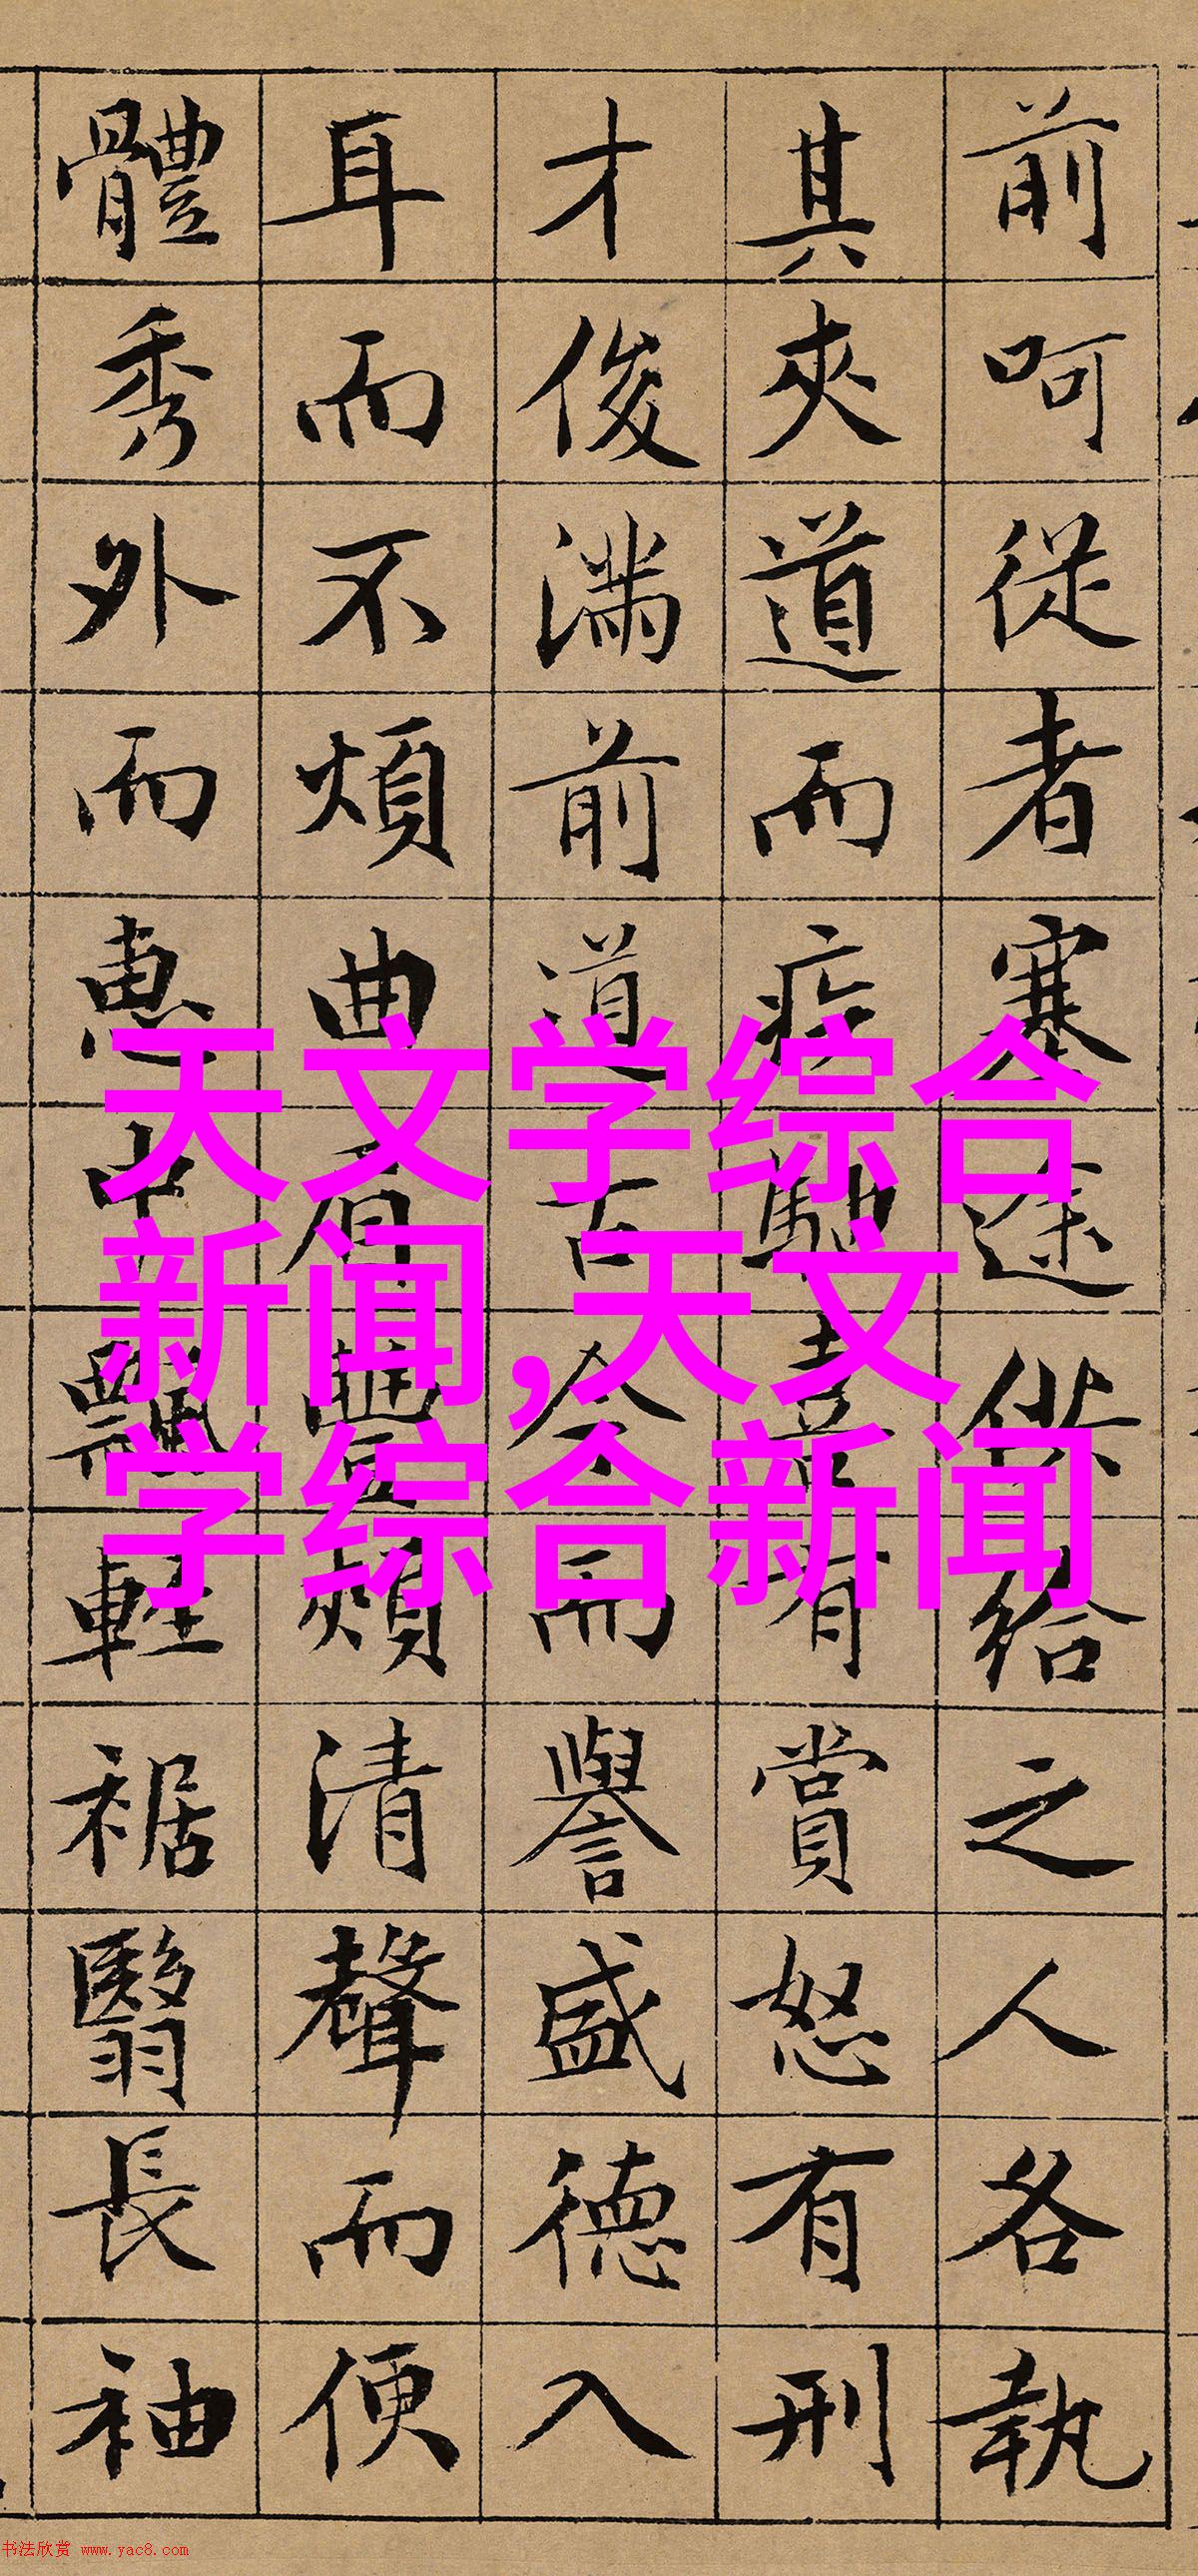 前呵從者塞途供給之人各執
其夾道而疾馳喜有賞怒有刑
才俊滿前道古今而譽盛德入
耳而不煩曲眉豐頰清聲而便
體秀外而惠中飄輕裾翳長袖
天文学综合
新闻,天文
学综合新闻
书法欣赏 www.yac8.com